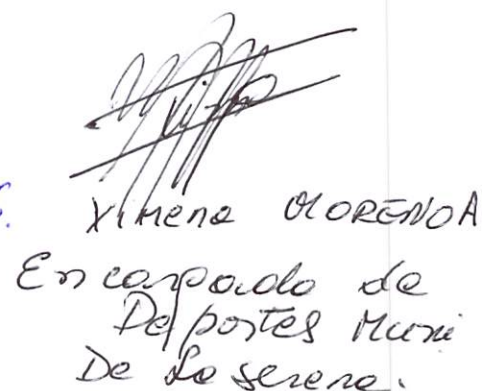 Ximena MORENO A
Encargado de
Deportes Muni
De La Serena.